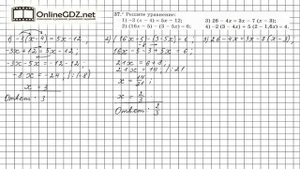 OnlineGDZ.net
37.° Решите уравнение:
1) −3 (x − 4) = 5x − 12;
2) (16x − 5) − (3 − 5x) = 6;
3) 26 − 4x = 3x − 7 (x − 3);
1) −3(x−4) = 5x−12;
−3x+12 = 5x−12,
−3x−5x = −12−12;
−8x = −24 |:(−8)
x = 3
Ответ: 3
2) (16x−5)−(3−5x)=6;
16x−5−3+5x=6;
21x = 6+8,
21x = 14 |:21
x = 14/21;
x = 2/3
Ответ: 2/3
3) 26−4x=3x−7(x−3)